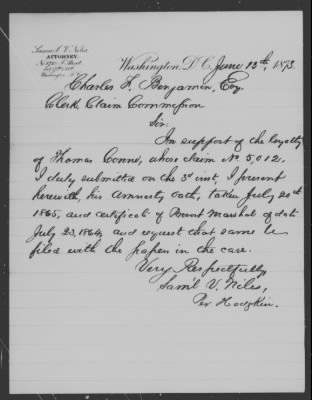 Samuel V. Niles,
ATTORNEY.
Washington, D.C. June 13th, 1873.
Charles F. Benjamin, Esq
Clerk, Claim Commission
Sir:
In support of the loyalty
of Thomas Conns, whose claim No. 5,012,
I duly submitted on the 3d inst, I present
herewith, his amnesty oath, taken July 20th
1865, and certificate of Provost Marshal of date
July 23, 1864, and request that same be
filed with the papers in the case.
Very Respectfully,
Sam'l V. Niles,
Per Hodgkin.